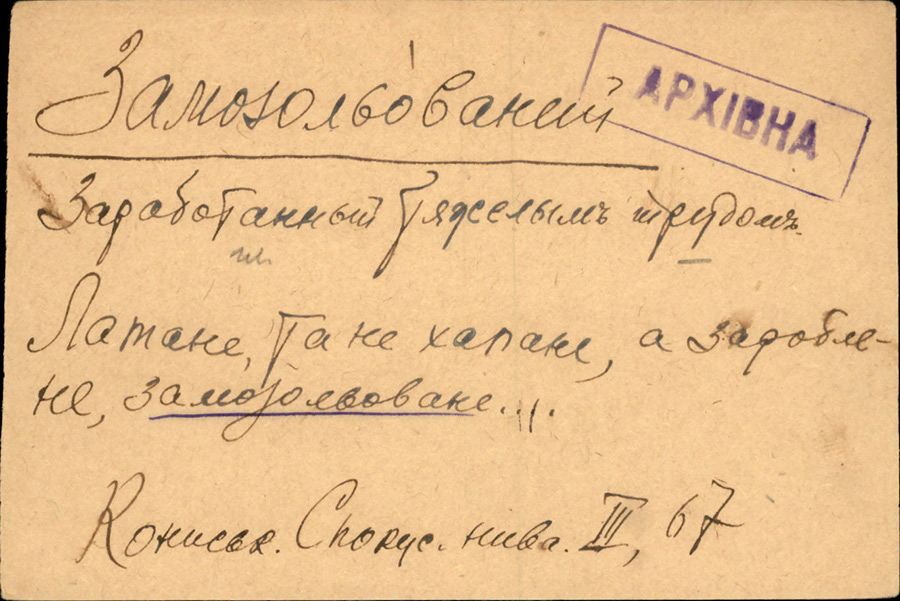 Замозольо́ваний
АРХІВНА
Заработанный тяжелымъ трудомъ.
Латане, та не хапане, а заробле-
не, замозольоване...
Кониськ. Спокус. нива. III, 67